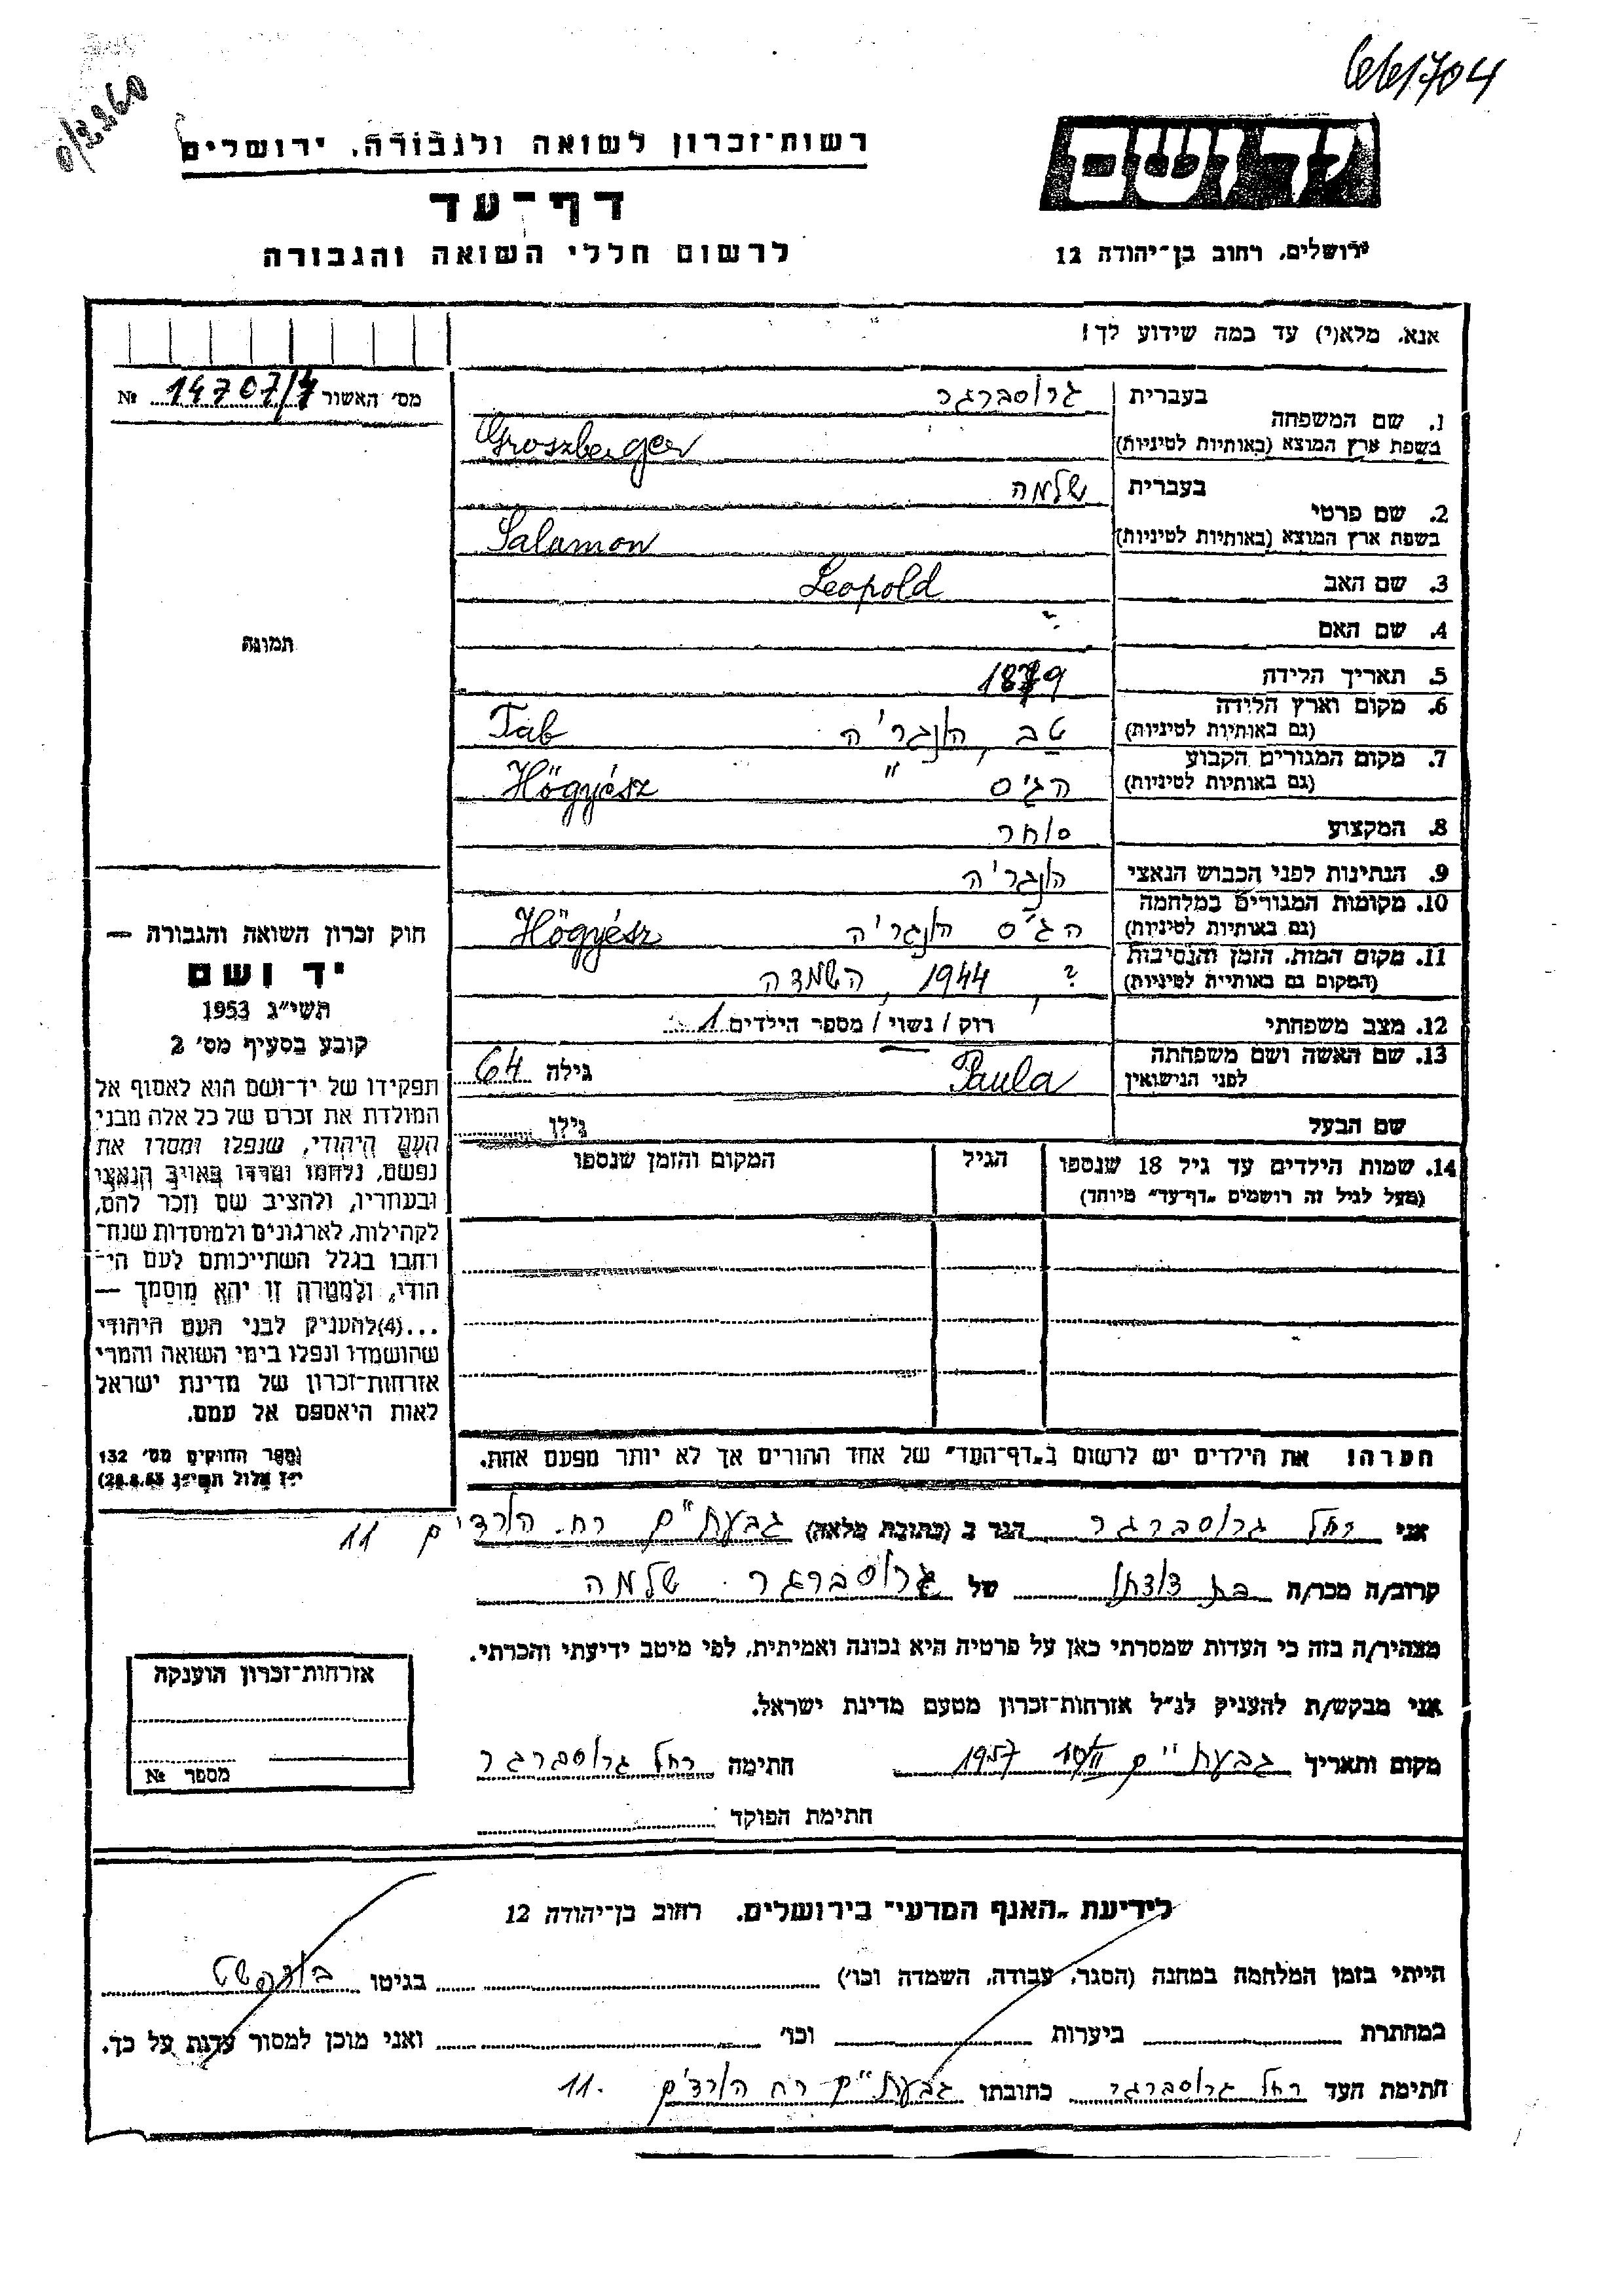 661704
רשות־זכרון לשואה ולגבורה, ירושלים
דף־עד
לרשום חללי השואה והגבורה
יד ושם
ירושלים, רחוב בן־יהודה 12
אנא, מלא(י) עד כמה שידוע לך!
מס׳ האשור 14707/7 №
תמונה
1. שם המשפחה
בעברית גרוסברגר
בשפת ארץ המוצא (באותיות לטיניות) Groszberger
2. שם פרטי
בעברית שלמה
בשפת ארץ המוצא (באותיות לטיניות) Salamon
3. שם האב Leopold
4. שם האם ?
5. תאריך הלידה 1879
6. מקום וארץ הלידה
(גם באותיות לטיניות) טב, הונגריה Tab
7. מקום המגורים הקבוע
(גם באותיות לטיניות) הגיס " Högyész
8. המקצוע סוחר
9. הנתינות לפני הכבוש הנאצי הונגריה
10. מקומות המגורים במלחמה
(גם באותיות לטיניות) הגיס הונגריה Högyész
11. מקום המות, הזמן והנסיבות
(המקום גם באותיות לטיניות) ?, 1944, השמדה
12. מצב משפחתי רוק / נשוי / מספר הילדים 1
13. שם האשה ושם משפחתה
לפני הנישואין Paula גילה 64
שם הבעל גילו
14. שמות הילדים עד גיל 18 שנספו הגיל המקום והזמן שנספו
(מעל לגיל זה רושמים „דף־עד״ מיוחד)
הערה! את הילדים יש לרשום ב„דף־העד״ של אחד ההורים אך לא יותר מפעם אחת.
חוק זכרון השואה והגבורה —
יד ושם
תשי״ג 1953
קובע בסעיף מס׳ 2
תפקידו של יד־ושם הוא לאסוף אל
המולדת את זכרם של כל אלה מבני
העם היהודי, שנפלו ומסרו את
נפשם, נלחמו ומרדו באויב הנאצי
ובעוזריו, ולהציב שם וזכר להם,
לקהילות, לארגונים ולמוסדות שנח־
רבו בגלל השתייכותם לעם הי־
הודי, ולמטרה זו יהא מוסמך —
...(4)להעניק לבני העם היהודי
שהושמדו ונפלו בימי השואה והמרי
אזרחות־זכרון של מדינת ישראל
לאות היאספם אל עמם.
(ספר החוקים מס׳ 132
י״ז אלול תשי״ג 28.8.53)
אני רחל גרוסברגר הגר ב (כתובת מלאה) גבעת"ם רח. הורדים 11
קרוב/ה מכר/ה בת דודתו של גרוסברגר שלמה
מצהיר/ה בזה כי העדות שמסרתי כאן על פרטיה היא נכונה ואמיתית, לפי מיטב ידיעתי והכרתי.
אני מבקש/ת להעניק לנ״ל אזרחות־זכרון מטעם מדינת ישראל.
מקום ותאריך גבעת"ם 1957 חתימה רחל גרוסברגר
חתימת הפוקד
אזרחות־זכרון הוענקה
מספר №
לידיעת „האגף המדעי״ בירושלים, רחוב בן־יהודה 12
הייתי בזמן המלחמה במחנה (הסגר, עבודה, השמדה וכו׳) בגיטו בודפשט
במחתרת ביערות וכו׳ ואני מוכן למסור עדות על כך.
חתימת העד רחל גרוסברגר כתובתו גבעת"ם רח הורדים 11.